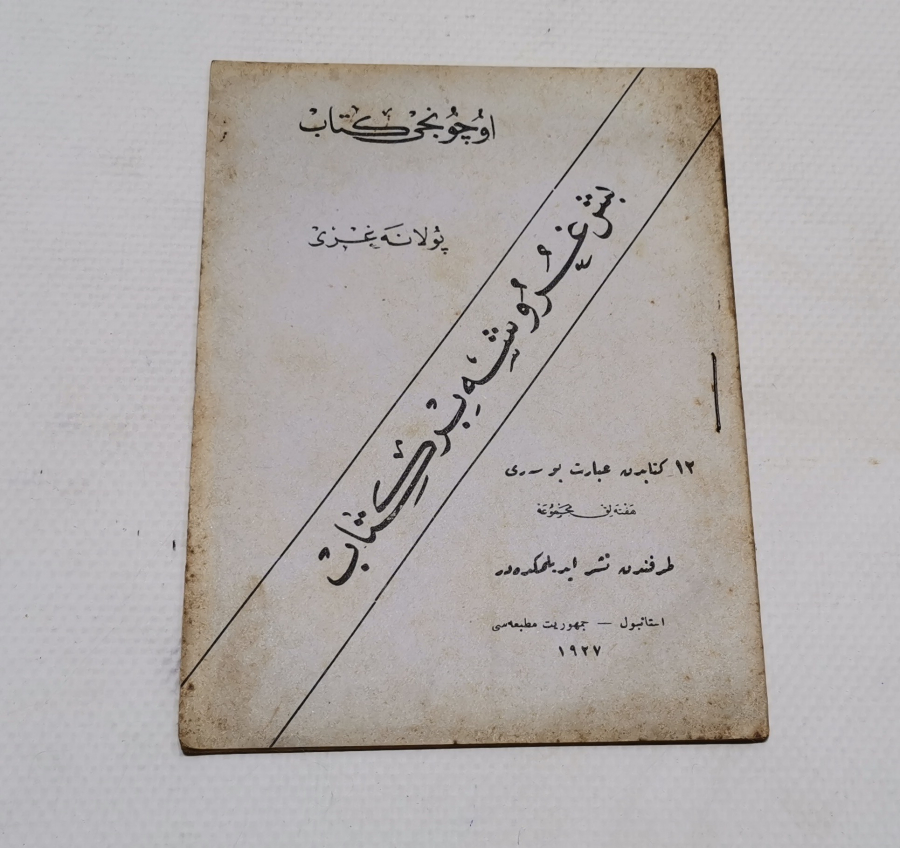 اوُچوُنجى كتاب
پوُلانَه غِزى
بش غُرُوشِه بِر كِتاب
١٢ كتابدن عبارت بو سرى
هَفتَه لِق مَجمُوعَه
طرفندن نشر ايديلمكده در
استانبول — جمهوريت مطبعه سى
١٩٢٧